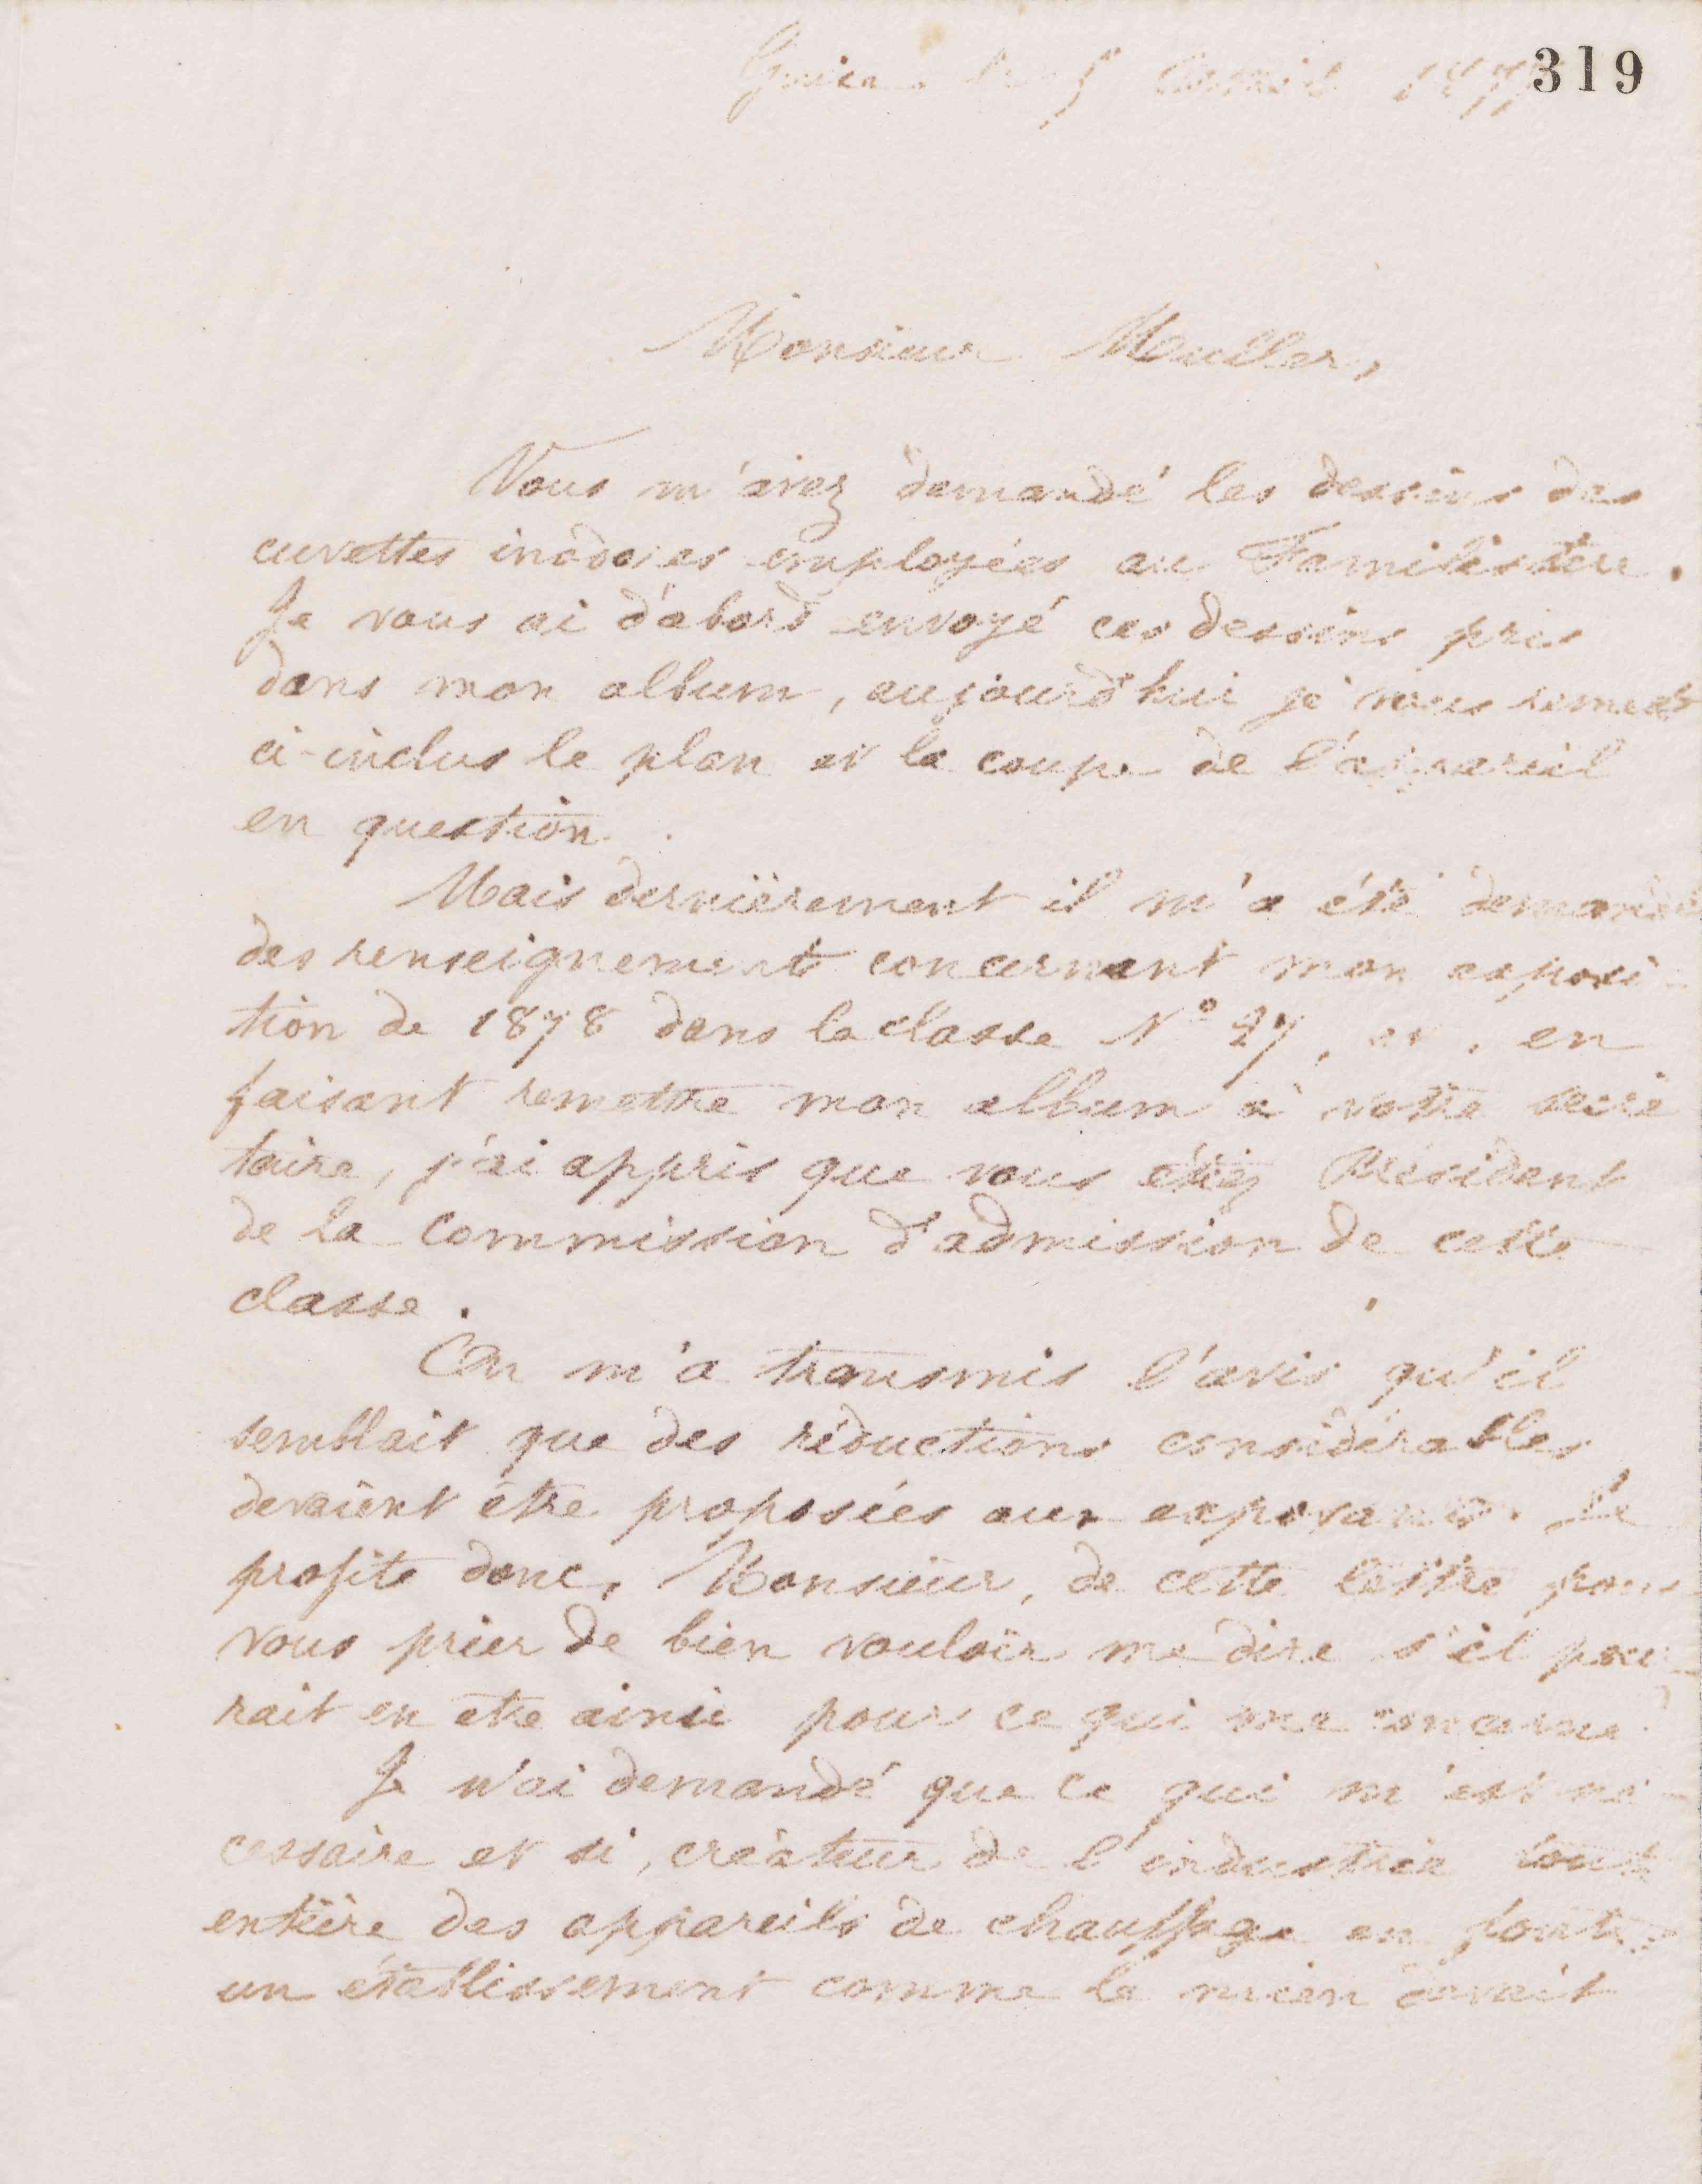 319
le 5 Avril 1877
Monsieur Muller,
Vous m'aviez demandé les dessins des
cuvettes inodores employées au Familistère.
Je vous ai d'abord envoyé ces dessins pris
dans mon album, aujourd'hui je vous remets
ci-inclus le plan et la coupe de l'appareil
en question.
Mais dernièrement il m'a été demandé
des renseignements concernant mon exposi-
tion de 1878 dans la classe N° 27, et, en
faisant remettre mon album à votre secré
taire, j'ai appris que vous étiez Président
de la commission d'admission de cette
classe.
On m'a transmis l'avis qu'il
semblait que des réductions considérables
devaient être proposées aux exposants. Je
profite donc, Monsieur, de cette lettre pour
vous prier de bien vouloir me dire s'il pour-
rait en être ainsi pour ce qui me concerne.
Je n'ai demandé que ce qui m'est né-
cessaire et si, créateur de l'industrie tout
entière des appareils de chauffage en fonte,
un établissement comme le mien devait